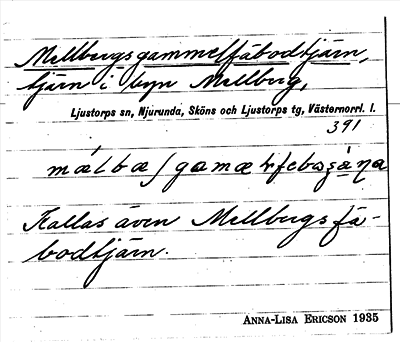 Mellbergsgammelfäbodtjärn,
tjärn i byn Mellberg,
Ljustorps sn, Njurunda, Sköns och Ljustorps tg, Västernorrl. l.
391
Kallas även Mellbergsfä-
bodtjärn.
ANNA-LISA ERICSON 1935